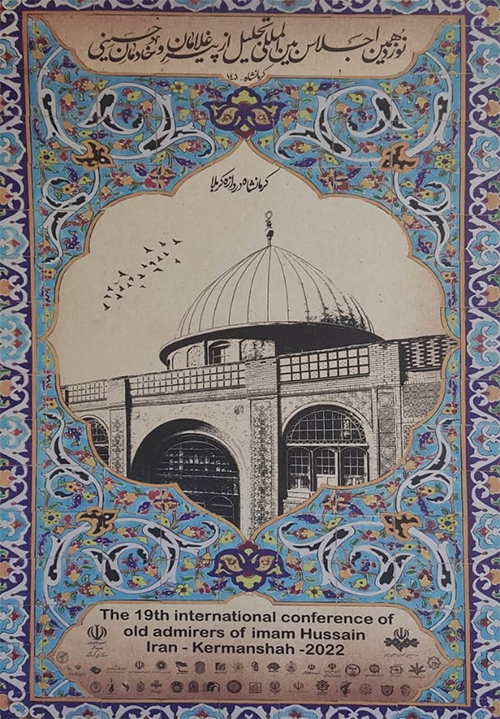 نوزدهمین اجلاس بین المللی تجلیل از پیرغلامان و خادمان حسینی
کرمانشاه ۱۴۰۱
کرمانشاه دروازه کربلا
The 19th international conference of
old admirers of imam Hussain
Iran - Kermanshah -2022